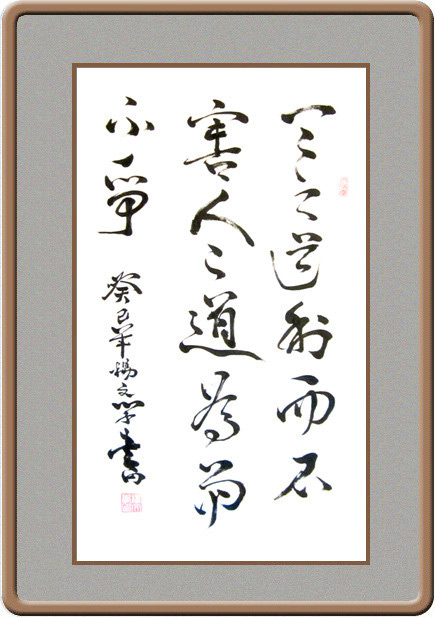 天之道利而不
害人之道為而
不爭
癸巳年楊文学書